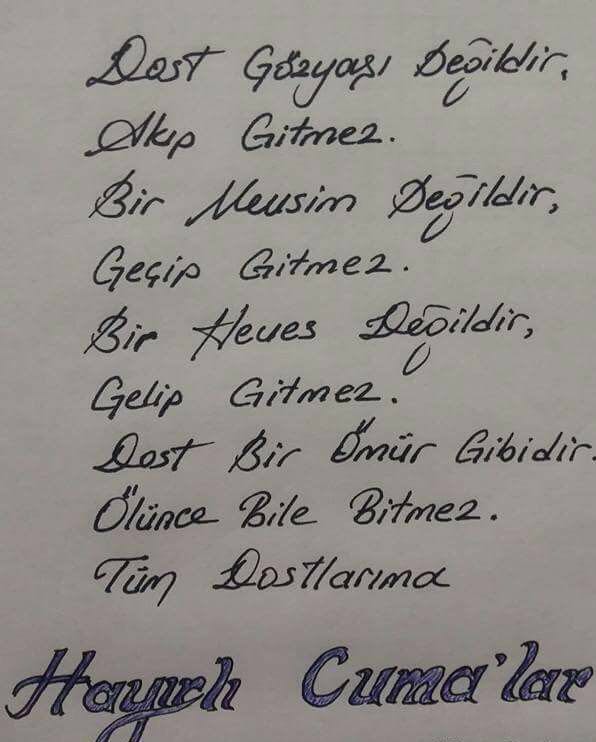 Dost Gözyaşı Değildir,
Akıp Gitmez.
Bir Mevsim Değildir,
Geçip Gitmez.
Bir Heves Değildir,
Gelip Gitmez.
Dost Bir Ömür Gibidir.
Ölünce Bile Bitmez.
Tüm Dostlarıma
Hayırlı Cuma'lar